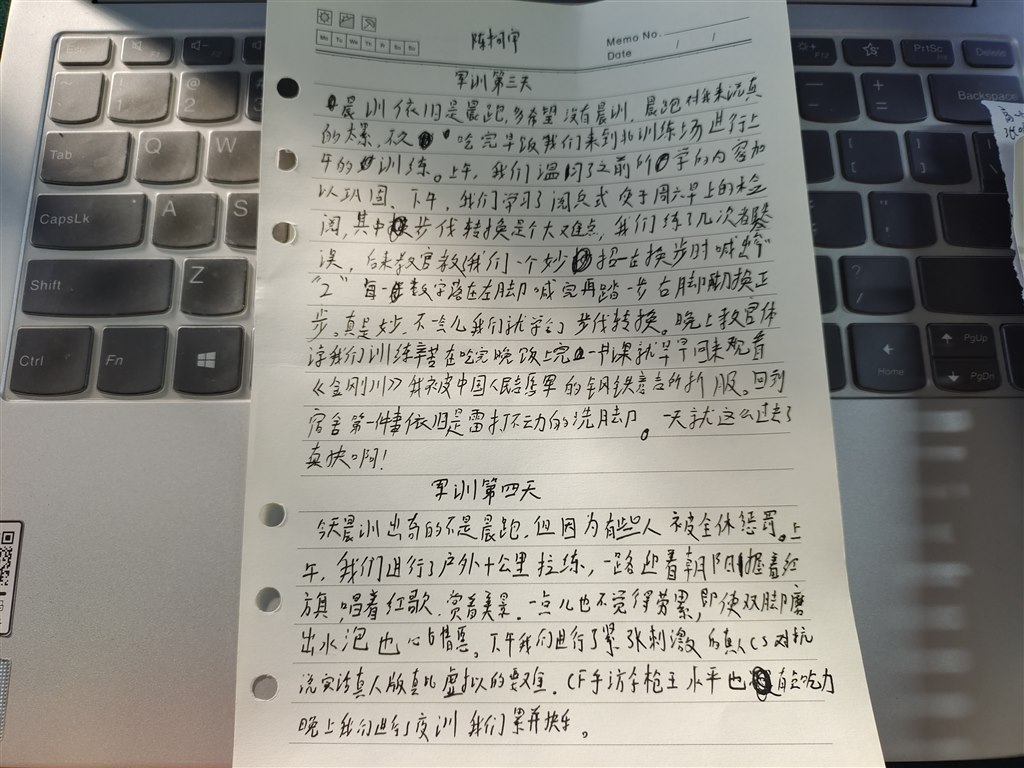 Memo No.
Mo Tu We Th Fr Sa Su
Date / /
军训第三天
晨训依旧是晨跑,多希望没有晨训,晨跑对我来说真
的太累,不久 吃完早饭我们来到训练场进行上
午的训练。上午,我们温习了之前所学的内容加
以巩固、下午,我们学习了阅兵式 处于周六早上的检
阅,其中步伐转换是个大难点,我们练了几次都
误,后来教官教我们一个妙招在换步时喊
“2”每一数字落在左脚 喊完再踏一步右脚助换正
步。真是妙,不一会儿我们就学会了步伐转换。晚上教官体
谅我们训练辛苦在吃完晚饭上完一节课就早早回来观看
《金刚川》我被中国人民志愿军的钢铁意志所折服。回到
宿舍第一件事依旧是雷打不动的洗脚。一天就这么过去了
真快啊!
军训第四天
今天晨训出奇的不是晨跑,但因为有些人被全体惩罚。上
午,我们进行了户外十公里拉练,一路迎着朝阳握着红
旗,唱着红歌,赏着美景.一点儿也不觉得劳累,即使双脚磨
出水泡也心甘情愿。下午我们进行了紧张刺激的真人CS对抗
说实话真人版真比虚拟的难.CF手游手枪王水平也有些吃力
晚上我们进行了夜训 我们累并快乐。
Esc
Tab
Q
W
CapsLk
A
S
Shift
Z
Ctrl
Fn
PrtSc
Delete
Backspace
Home
PgUp
PgDn